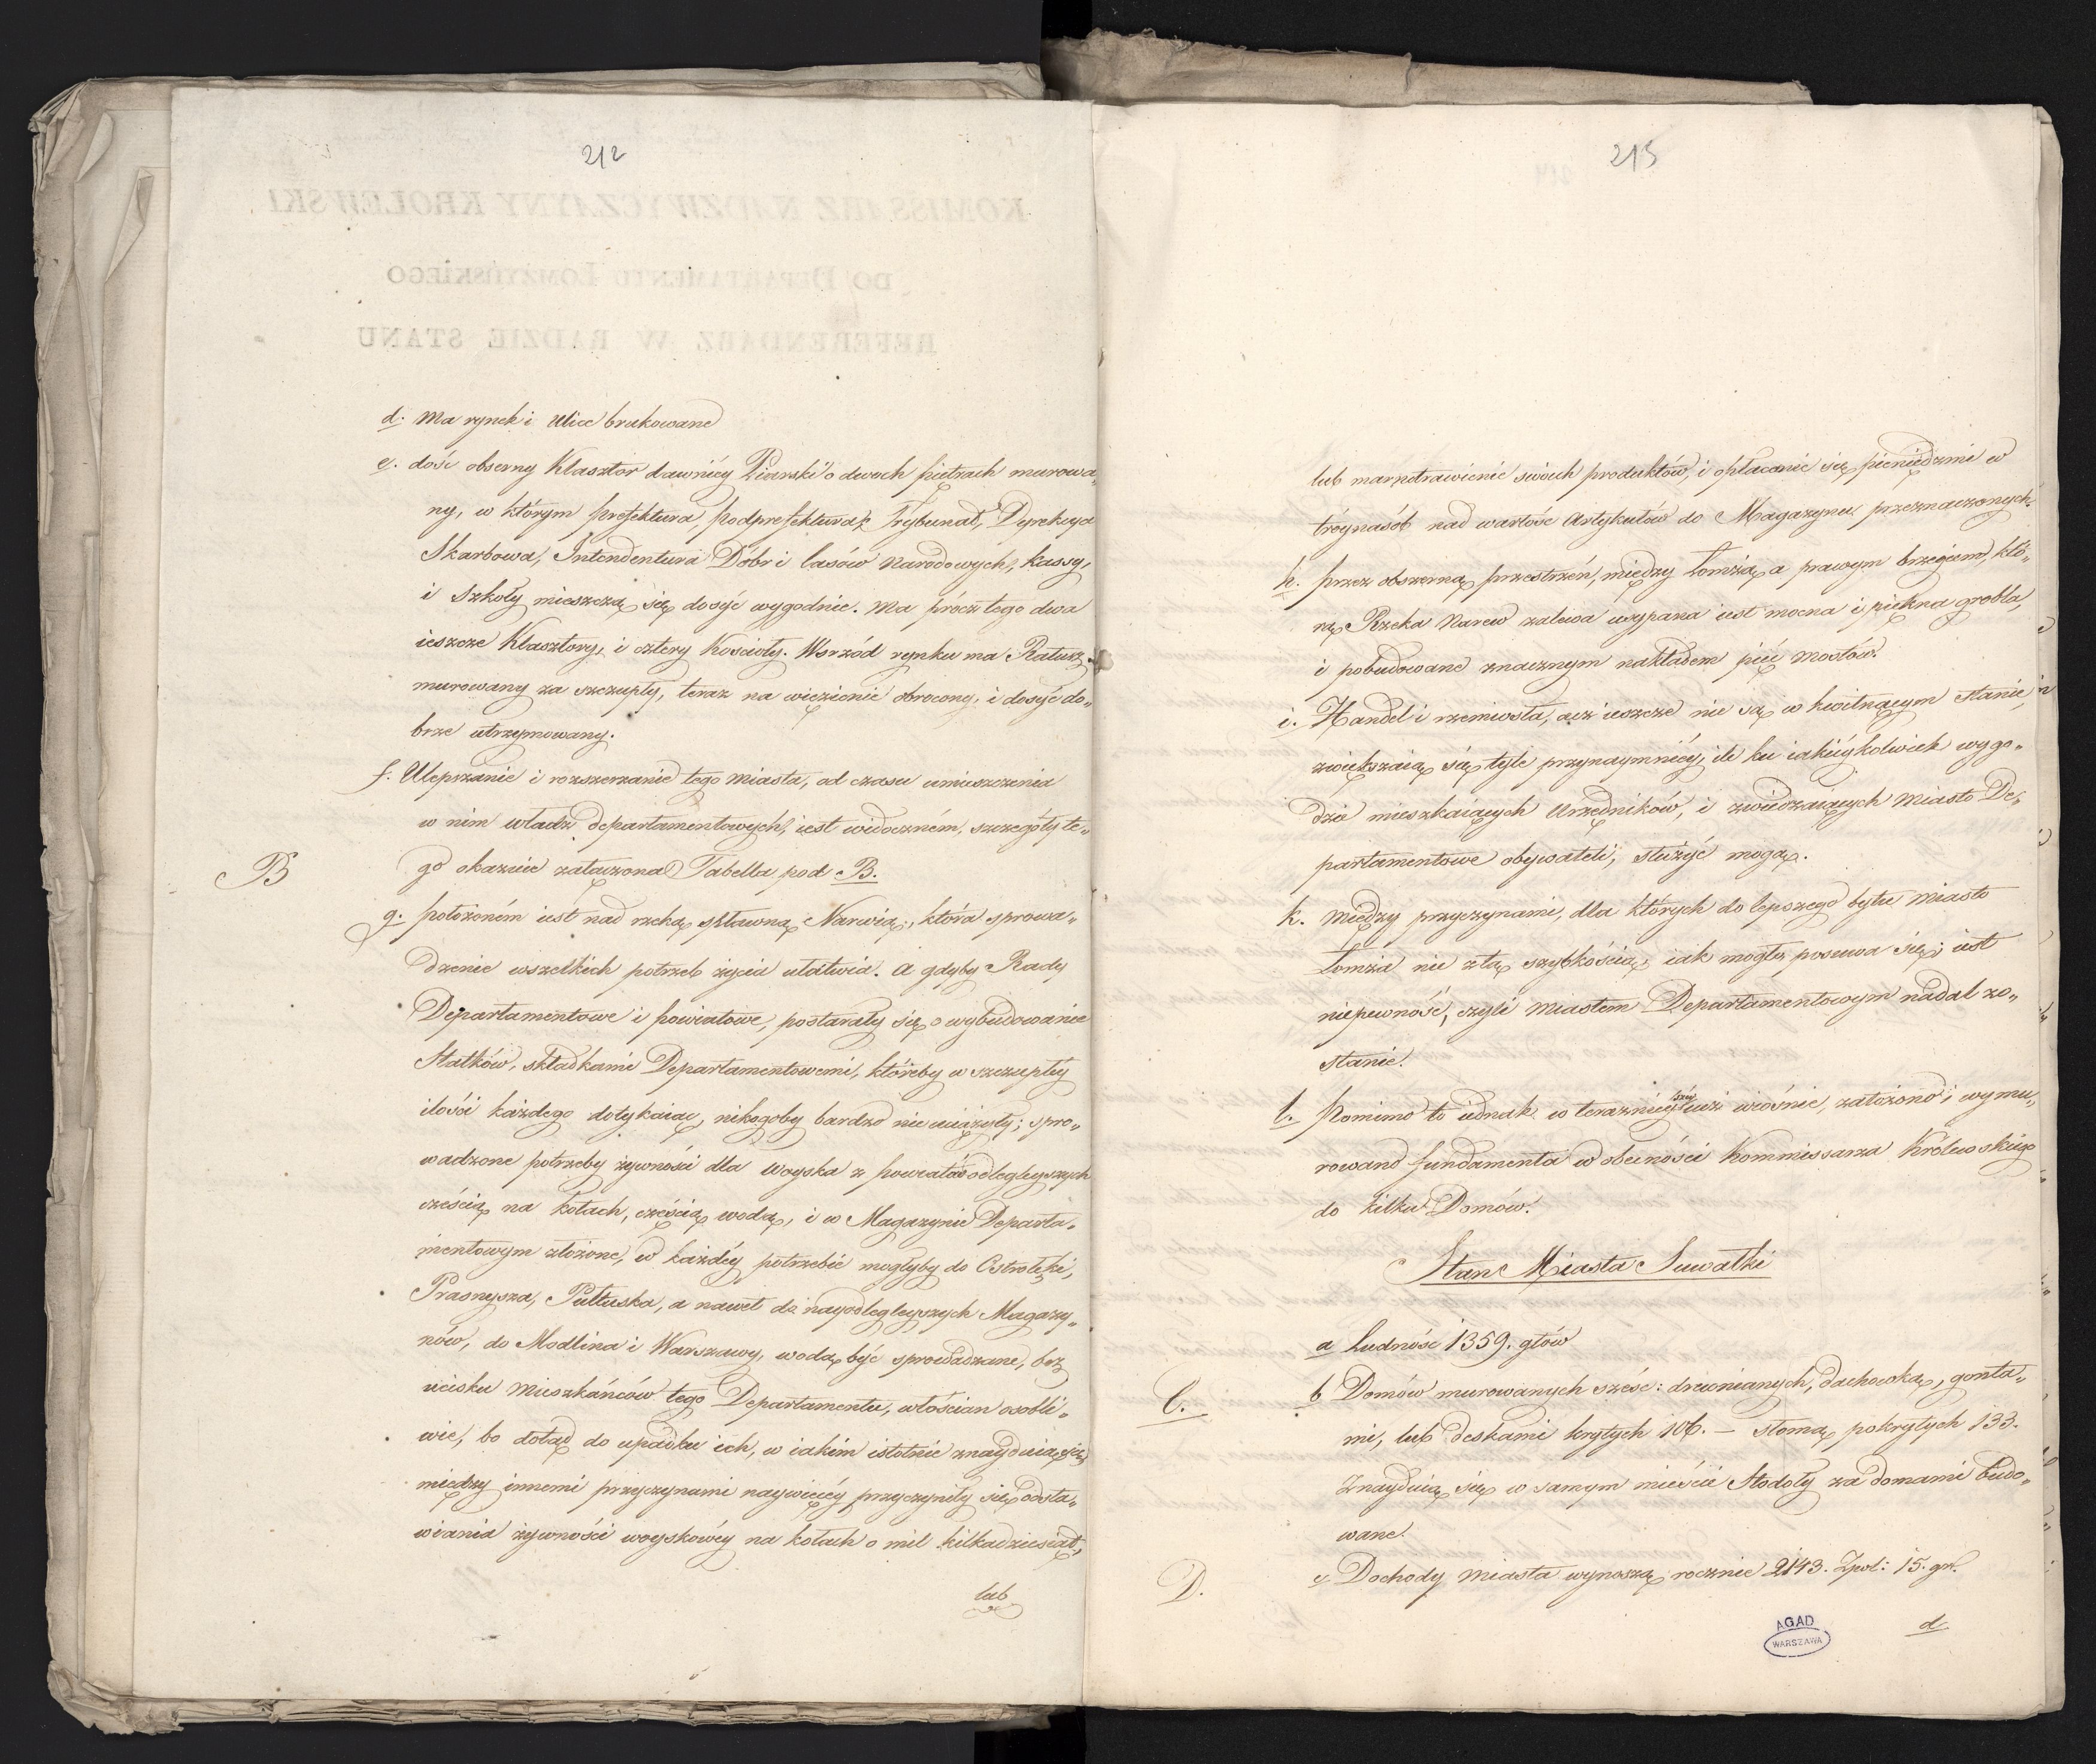 212
d. Ma rynek i Ulice brukowane
e. dość obserny Klasztor dawniéy Piiarski o dwóch piętrach murowa„
ny, w którym prefektura, podprefektura, Trybunał, Dyrekcya
Skarbowa, Intendentura Dóbr i lasów Narodowych, kassy,
i Szkoły mieszczą się dosyć wygodnie. Ma prócz tego dwa
ieszcze Klasztory, i cztery Kościoły. Wśrzód rynku ma Ratusz
murowany za szczupły, teraz na więzienie obrócony, i dosyć do„
brze utrzymowany.
f. Ulepszanie i rozszerzanie tego Miasta, od czasu umieszczenia
w nim władz departamentowych, iest widoczném, szczegóły te„
B
go okazuie załączona Tabella pod B.
g. położoném iest nad rzeką spławną Narwią, która sprowa„
dzenie wszelkich potrzeb życia ułatwia. A gdyby Rady
Departamentowe i powiatowe, postarały się o wybudowanie
Statków, składkami Departamentowemi, któreby w szczupłéy
ilości każdego dotykaiąc, nikogoby bardzo nie uciążyły; spro„
wadzone potrzeby żywności dla woyska z powiatów odlegleyszych
częścią na kołach, częścią wodą, i w Magazynie Departa„
mentowym złożone, w każdéy potrzebie mogłyby do Ostrołęki,
Prasnysza, Pułtuska, a nawet do nayodlegleyszych Magazy„
nów, do Modlina i Warszawy, wodą być sprowadzane, bez
ucisku Mieszkańców tego Departamentu, włościan osobli„
wie, bo dotąd do upadku ich, w iakim istotnie znayduią się,
między innemi przyczynami naywięcéy przyczyniły się odsta„
wiania żywności woyskowéy na kołach o mil kilkadziesiąt,
lub
215
lub marnotrawienie swoich produktów, i opłacanie się pieniędzmi w
tróynasób nad wartość Artykułów do Magazynu przeznaczonych.
h. przez obszerną przestrzeń, między Łomżą a prawym brzegiem, któ„
rą Rzeka Narew zalewa usypana iest mocna i piękna grobla,
i pobudowane znacznym nakładem pięć mostów.
i. Handel i rzemiosła, acz ieszcze nie są w kwitnącym stanie,
zwiększaią się tyle przynaymniéy, ile ku iakiéykolwiek wygo„
dzie mieszkaiących Urzędników, i zwiedzaiących Miasto De„
partamentowe obywateli, służyć mogą.
k. Między przyczynami, dla których do lepszego bytu Miasto
Łomża nie z tą szybkością, iak mogło posuwa się; iest
niepewność, czyli Miastem Departamentowym nadal zo„
stanie.
l. Pomimo to iednak w teraznieyszéy iuż wiośnie, założono i wymu„
rowano fundamenta w obecności Kommissarza Królewskiego
do kilku Domów.
Stan Miasta Suwałki
a Ludność 1359. głów
C.
b Domów murowanych sześć: drewnianych, dachówką, gonta„
mi, lub deskami krytych 106. – słomą pokrytych 133.
Znayduią się w samym mieście Stodoły za domami budo„
wane.
D.
c Dochody Miasta wynoszą rocznie 2143. Zpol: 15. gr.
d
AGAD
WARSZAWA